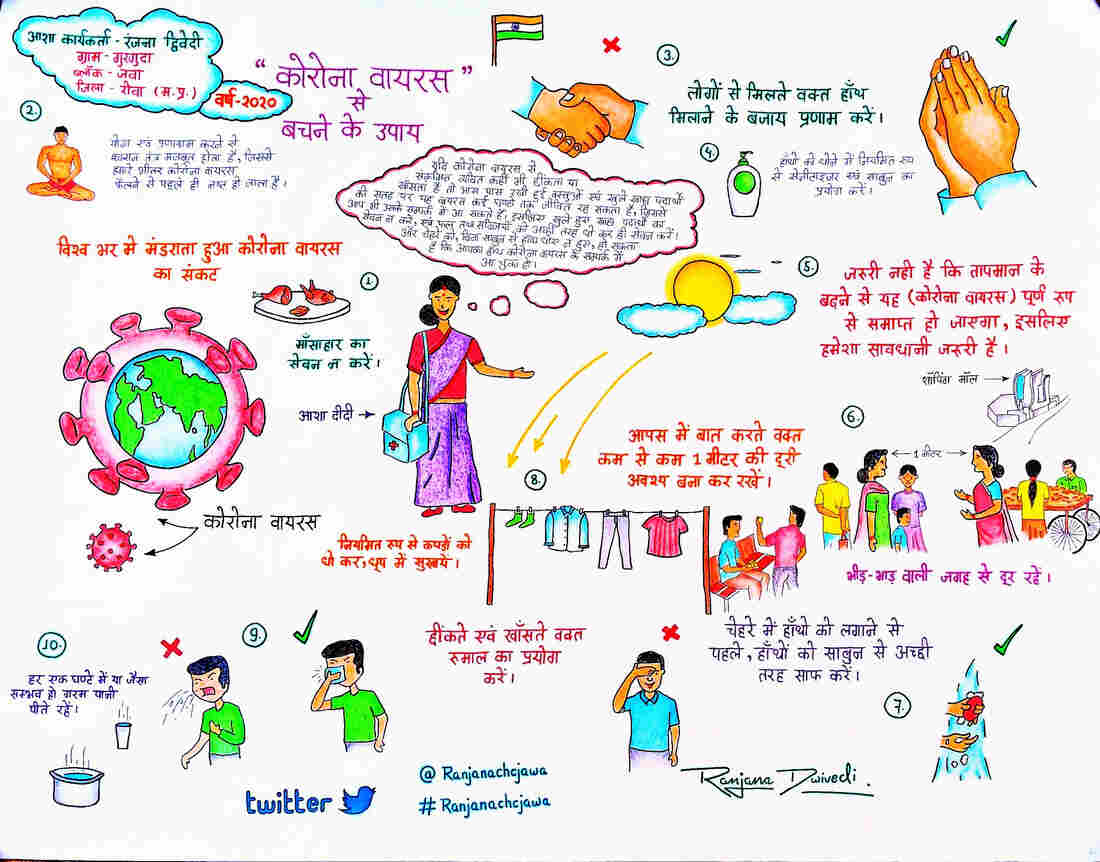 आशा कार्यकर्ता - रंजना द्विवेदी
ग्राम - गुरगुदा
ब्लॉक - जवा
जिला - रीवा (म.प्र.)
वर्ष-2020
“ कोरोना वायरस ”
से
बचने के उपाय
2.
योगा एवं प्रणायाम करने से
श्वसन तंत्र मजबूत होता है, जिससे
हमारे भीतर कोरोना वायरस
फैलने से पहले ही नष्ट हो जाता है।
3.
लोगों से मिलते वक्त हाँथ
मिलाने के बजाय प्रणाम करें।
4.
हाँथों को धोने में नियमित रूप
से सेनीटाइजर एवं साबुन का
प्रयोग करें।
यदि कोरोना वायरस से
संक्रमित व्यक्ति कहीं भी छींकता या
खाँसता है तो आस पास रखी हुई वस्तुओं एवं खुले खाद्य पदार्थों
की सतह पर यह वायरस कई घण्टों तक जीवित रह सकता है, जिससे
आप भी उसके सम्पर्क में आ सकते हैं, इसलिए खुले हुए खाद्य पदार्थों का
सेवन न करें, एवं फल तथा सब्जियों को अच्छी तरह धो कर ही सेवन करें।
और चेहरे को, बिना साबुन से हाथ धोए न छुए, हो सकता
है कि आपका हाँथ कोरोना वायरस के सम्पर्क में
आ चुका हो।
विश्व भर मे मंडराता हुआ कोरोना वायरस
का संकट
1.
माँसाहार का
सेवन न करें।
आशा दीदी →
कोरोना वायरस
5.
जरूरी नही है कि तापमान के
बढ़ने से यह (कोरोना वायरस) पूर्ण रूप
से समाप्त हो जाएगा, इसलिए
हमेशा सावधानी जरूरी है।
शॉपिंग मॉल →
6.
आपस में बात करते वक्त
कम से कम 1 मीटर की दूरी
अवश्य बना कर रखें।
← 1 मीटर →
भीड़-भाड़ वाली जगह से दूर रहें।
8.
नियमित रूप से कपड़ों को
धो कर, धूप में सुखायें।
10.
हर एक घण्टे में या जैसा
सम्भव हो गरम पानी
पीते रहें।
9.
छींकते एवं खाँसते वक्त
रूमाल का प्रयोग
करें।
चेहरे में हाँथो को लगाने से
पहले, हाँथों को साबुन से अच्छी
तरह साफ करें।
7.
twitter
@ Ranjanachcjawa
# Ranjanachcjawa
Ranjana Dwivedi.